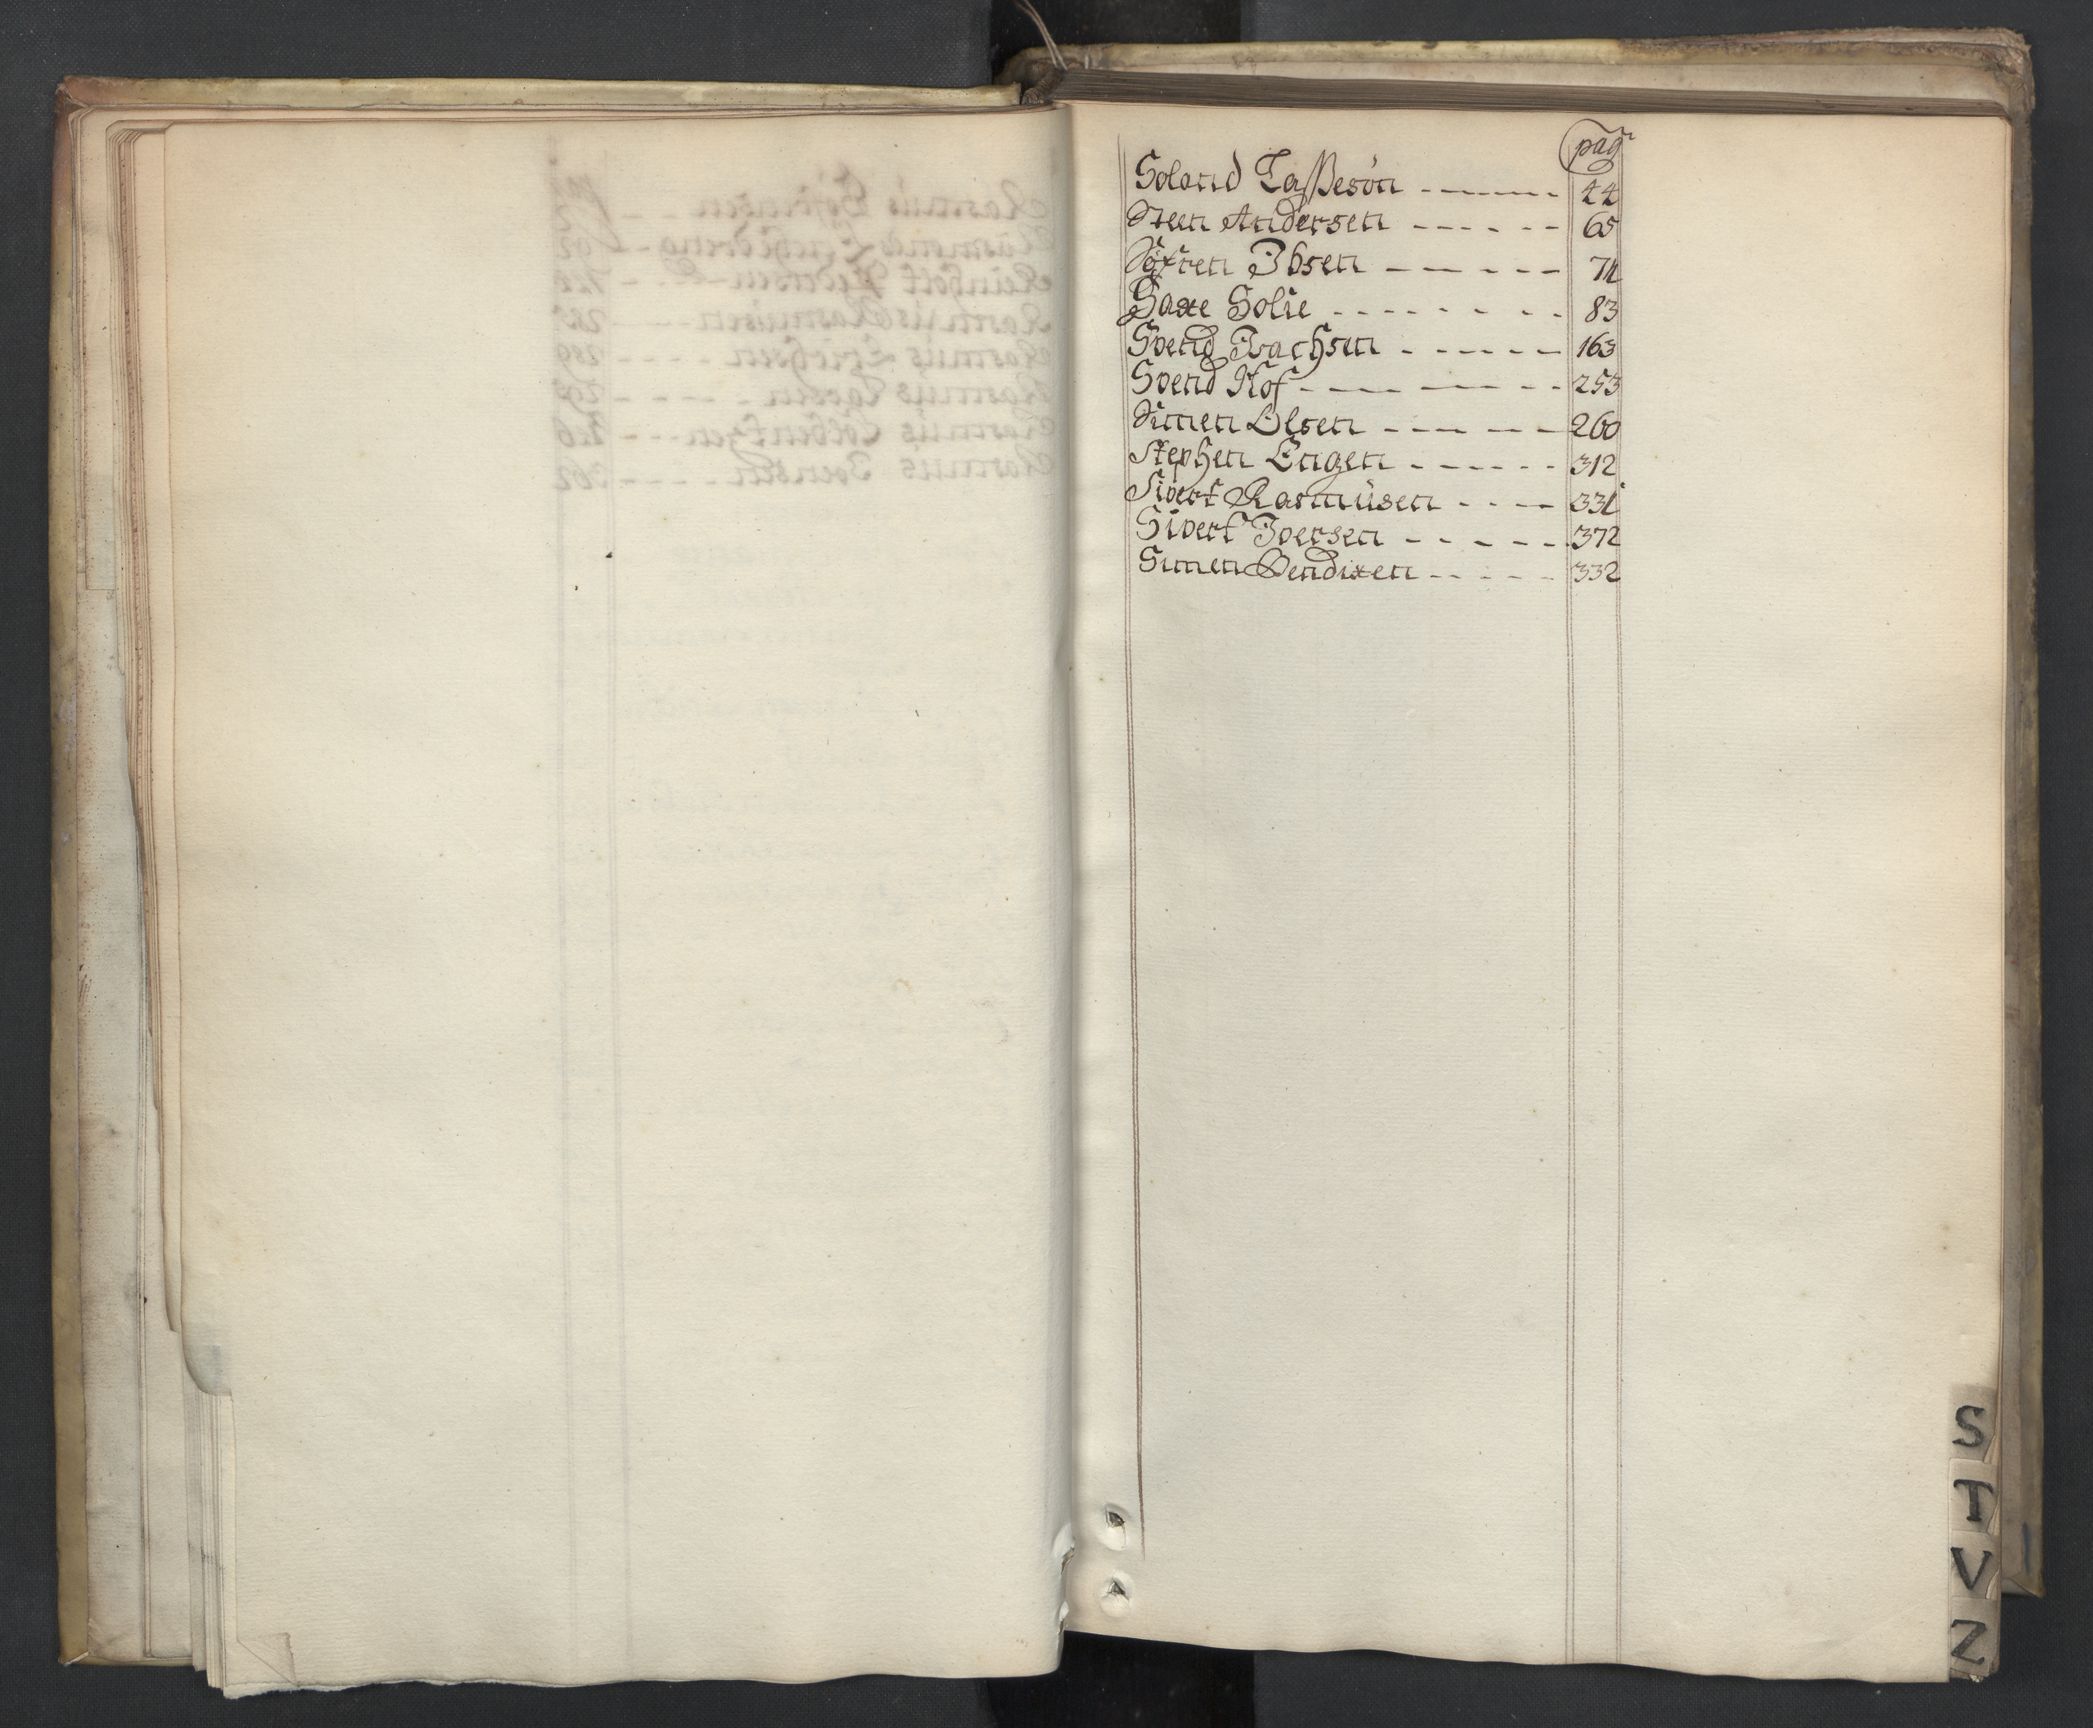 pag
Soland Taßesön - - - - - - 44
Steen Andersen - - - - - - 65
Söfren Ibsen - - - - - - 74
Saxe Solie - - - - - - - - 83
Svend Isachsen - - - - - - 163
Svend Hof - - - - - - - 253
Simen Olsen - - - - - - 260
Stephen Engen - - - - - - 312
Sivert Rasmüsen - - - - 331
Sivert Iversen - - - - - 372
Simen Bendixen - - - - - 332
S
T
V
Z